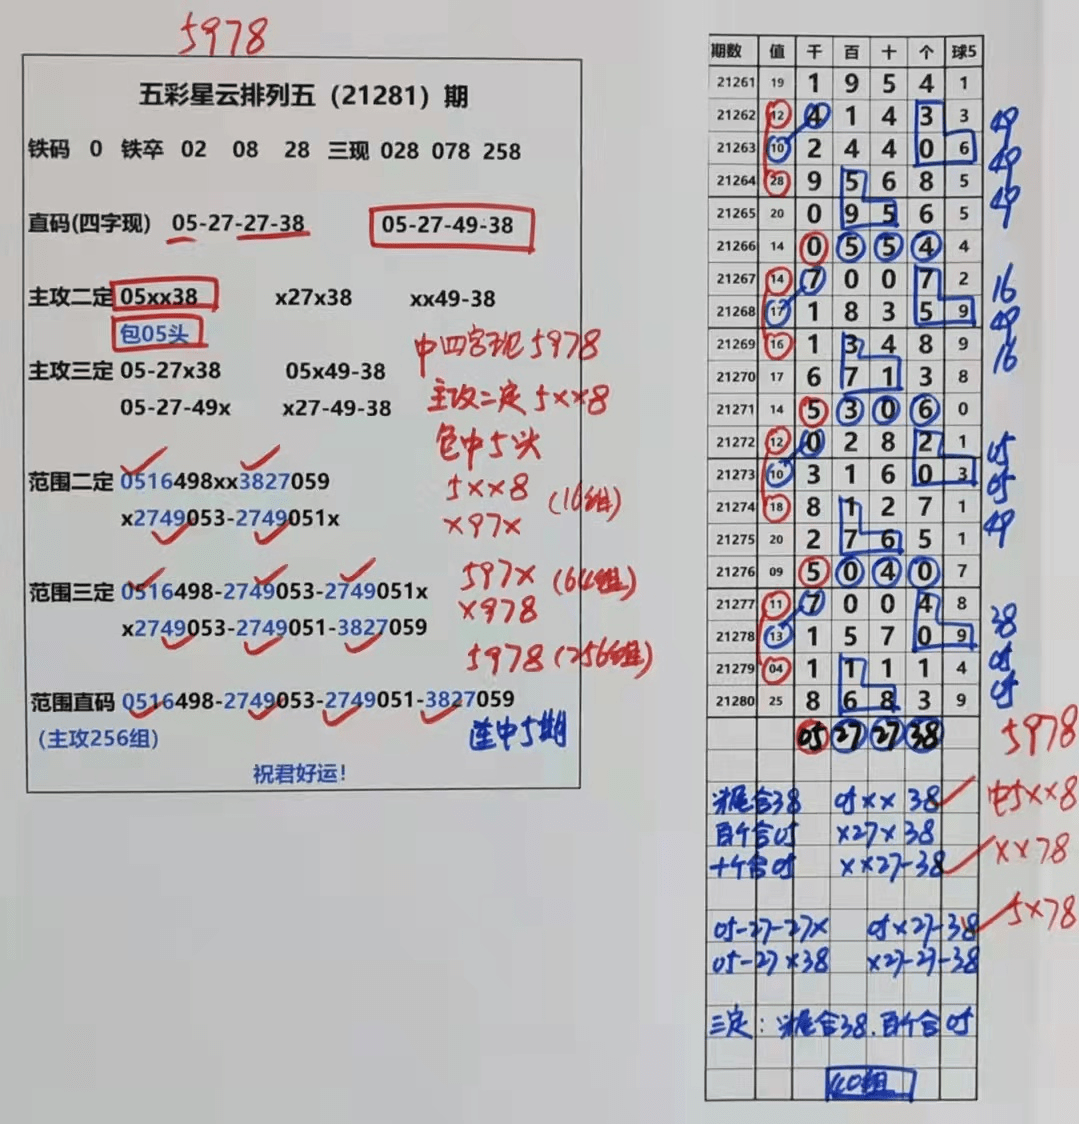 5978
五彩星云排列五（21281）期
铁码 0 铁卒 02 08 28 三现 028 078 258
直码(四字现) 05-27-27-38 05-27-49-38
主攻二定 05xx38 x27x38 xx49-38
包05头
中四字现5978
主攻三定 05-27x38 05x49-38
主攻二定5xx8
05-27-49x x27-49-38
包中5头
范围二定 0516498xx3827059
5xx8 (16组)
x2749053-2749051x
x97x
范围三定 0516498-2749053-2749051x
597x (64组)
x2749053-2749051-3827059
x978
5978 (256组)
范围直码 0516498-2749053-2749051-3827059
(主攻256组)
连中5期
祝君好运!
期数 值 千 百 十 个 球5
21261 19 1 9 5 4 1
21262 12 4 1 4 3 3 49
21263 10 2 4 4 0 6 49
21264 28 9 5 6 8 5 49
21265 20 0 9 5 6 5
21266 14 0 5 5 4 4
21267 14 7 0 0 7 2 16
21268 17 1 8 3 5 9 49
21269 16 1 3 4 8 9 16
21270 17 6 7 1 3 8
21271 14 5 3 0 6 0
21272 12 0 2 8 2 1 05
21273 10 3 1 6 0 3 05
21274 18 8 1 2 7 1 49
21275 20 2 7 6 5 1
21276 09 5 0 4 0 7
21277 11 7 0 0 4 8 38
21278 13 1 5 7 0 9 05
21279 04 1 1 1 1 4 05
21280 25 8 6 8 3 9
05 27 27 38 5978
头尾合38 05xx38 中5xx8
百个合05 x27x38
十个合05 xx27-38 xx78
05-27-27x 05x27-38 5x78
05-27x38 x27-27-38
三定：头尾合38.百个合05
40组